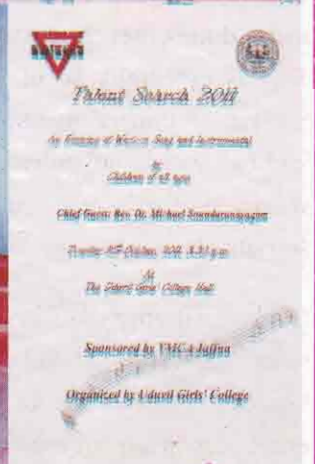 Talent Search 2011
An Evening of Western Song and Instrumental
by
Children of all ages
Chief Guest: Rev. Dr. Michael Soundaranayagam
October, 2011, p.m.
At
The Uduvil Girls' College Hall
Sponsored by YMCA Jaffna
Organized by Uduvil Girls' College